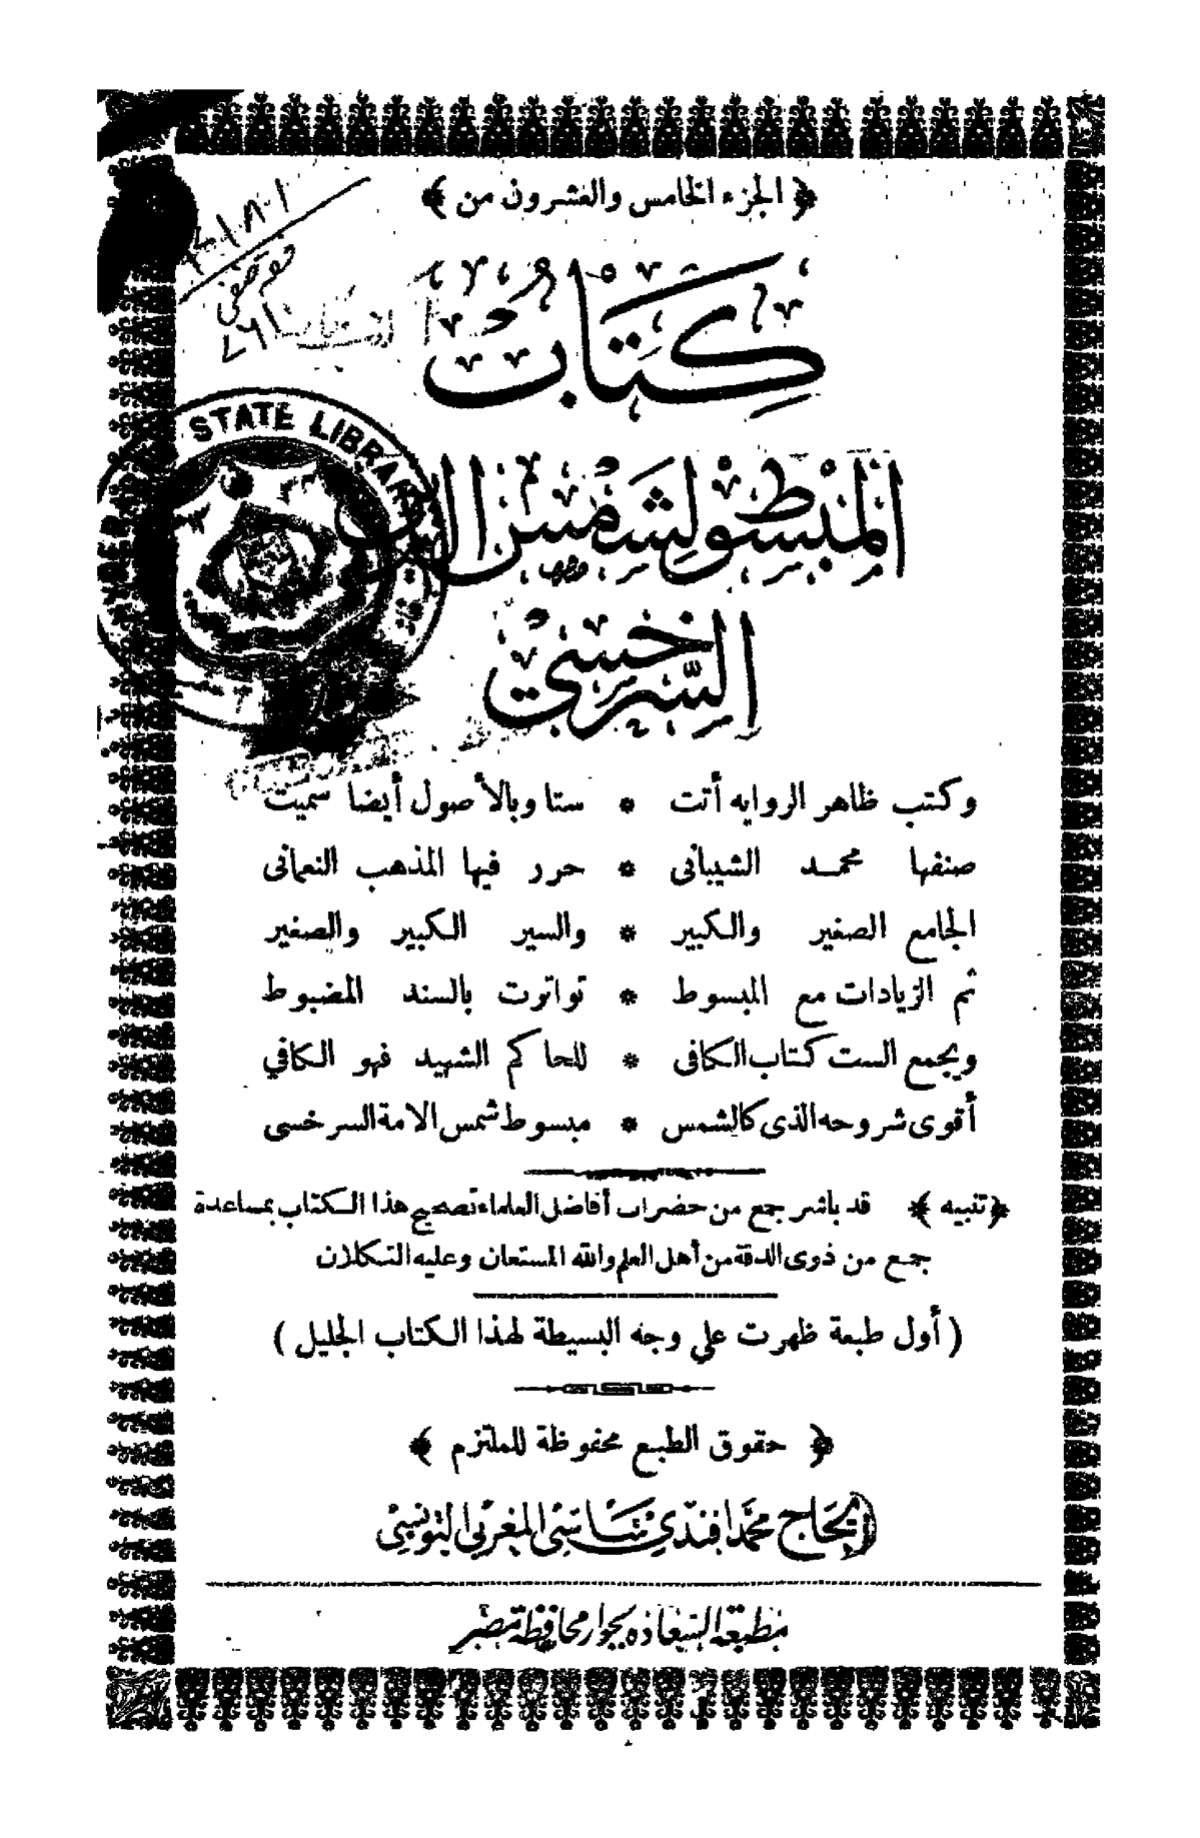 ﴿ الجزء الخامس والعشرون من ﴾
كتاب
المبسوط لشمس الدين
السرخسي
STATE LIBRARY
وكتب ظاهر الروايه أتت * ستا وبالأصول أيضا سميت
صنفها محمد الشيبانى * حرر فيها المذهب النعمانى
الجامع الصغير والكبير * والسير الكبير والصغير
ثم الزيادات مع المبسوط * تواترت بالسند المضبوط
ويجمع الست كتاب الكافى * للحاكم الشهيد فهو الكافي
أقوى شروحه الذى كالشمس * مبسوط شمس الامة السرخسى
﴿ تنبيه ﴾ قد باشر جمع من حضرات أفاضل العلماء تصحيح هذا الكتاب بمساعدة
جمع من ذوى الدقة من أهل العلم والله المستعان وعليه التكلان
( أول طبعة ظهرت على وجه البسيطة لهذا الكتاب الجليل )
﴿ حقوق الطبع محفوظة للملتزم ﴾
الحاج محمد افندي ساسي المغربي التونسي
مطبعة السعادة بجوار محافظة مصر